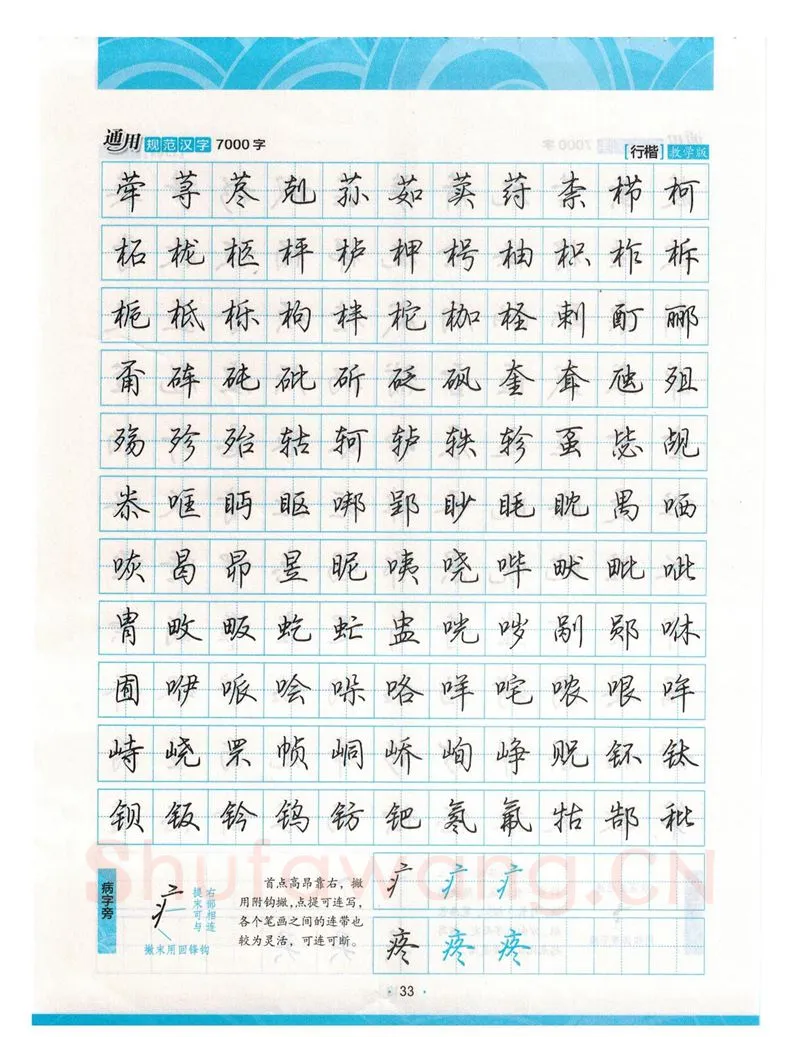 通用 规范汉字 7000字 [行楷] 教学版
荦 荨 荩 剋 荪 茹 荬 荮 柰 栉 柯
柘 栊 柩 枰 栌 柙 枵 柚 枳 柞 柝
栀 柢 栎 枸 柈 柁 枷 柽 剌 酊 郦
甭 砗 砘 砒 斫 砭 砜 奎 耷 虺 殂
殇 殄 殆 轱 轲 轳 轶 轸 虿 毖 觇
尜 哐 眄 眍 哪 郢 眇 眊 眈 禺 哂
咴 曷 昴 昱 昵 咦 哓 哔 畎 毗 呲
胄 畋 畈 虼 虻 盅 咣 哕 剐 郧 咻
囿 咿 哌 哙 哚 咯 咩 咤 哝 哏 哞
峙 峣 罘 帧 峒 峤 峋 峥 贶 钚 钛
钡 钣 钤 钨 钫 钯 氡 氟 牯 郜 秕
Shufawang.CN
病字旁
疒
右部相连
提末可与
撇末用回锋钩
首点高昂靠右，撇
用附钩撇，点提可连写，
各个笔画之间的连带也
较为灵活，可连可断。
疒 疒 疒
疼 疼 疼
· 33 ·